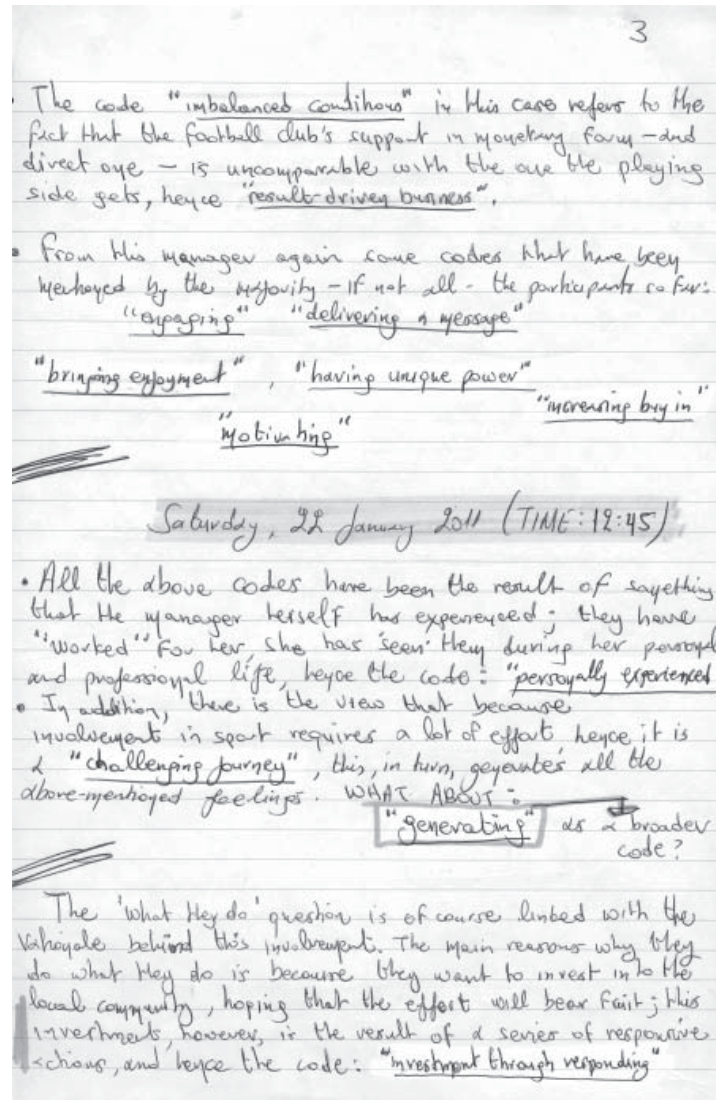 3
• The code "imbalanced conditions" in this case refers to the
fact that the football club's support in monetary form – and
direct one – is uncomparable with the one the playing
side gets, hence "result-driven business".
• From this manager again some codes that have been
mentioned by the majority – if not all – the participants so far:
"engaging" "delivering a message"
"bringing enjoyment", "having unique power"
"increasing buy in"
"motivating"
Saturday, 22 January 2011 (TIME: 12:45)
• All the above codes have been the result of something
that the manager herself has experienced; they have
"worked" for her, she has 'seen' them during her personal
and professional life, hence the code: "personally experienced
• In addition, there is the view that because
involvement in sport requires a lot of effort hence it is
a "challenging journey", this, in turn, generates all the
above-mentioned feelings. WHAT ABOUT:
"generating" as a broader
code?
The 'what they do' question is of course linked with the
rationale behind this involvement. The main reasons why they
do what they do is because they want to invest into the
local community, hoping that the effort will bear fruit; this
investment, however, is the result of a series of responsive
actions, and hence the code: "investment through responding"